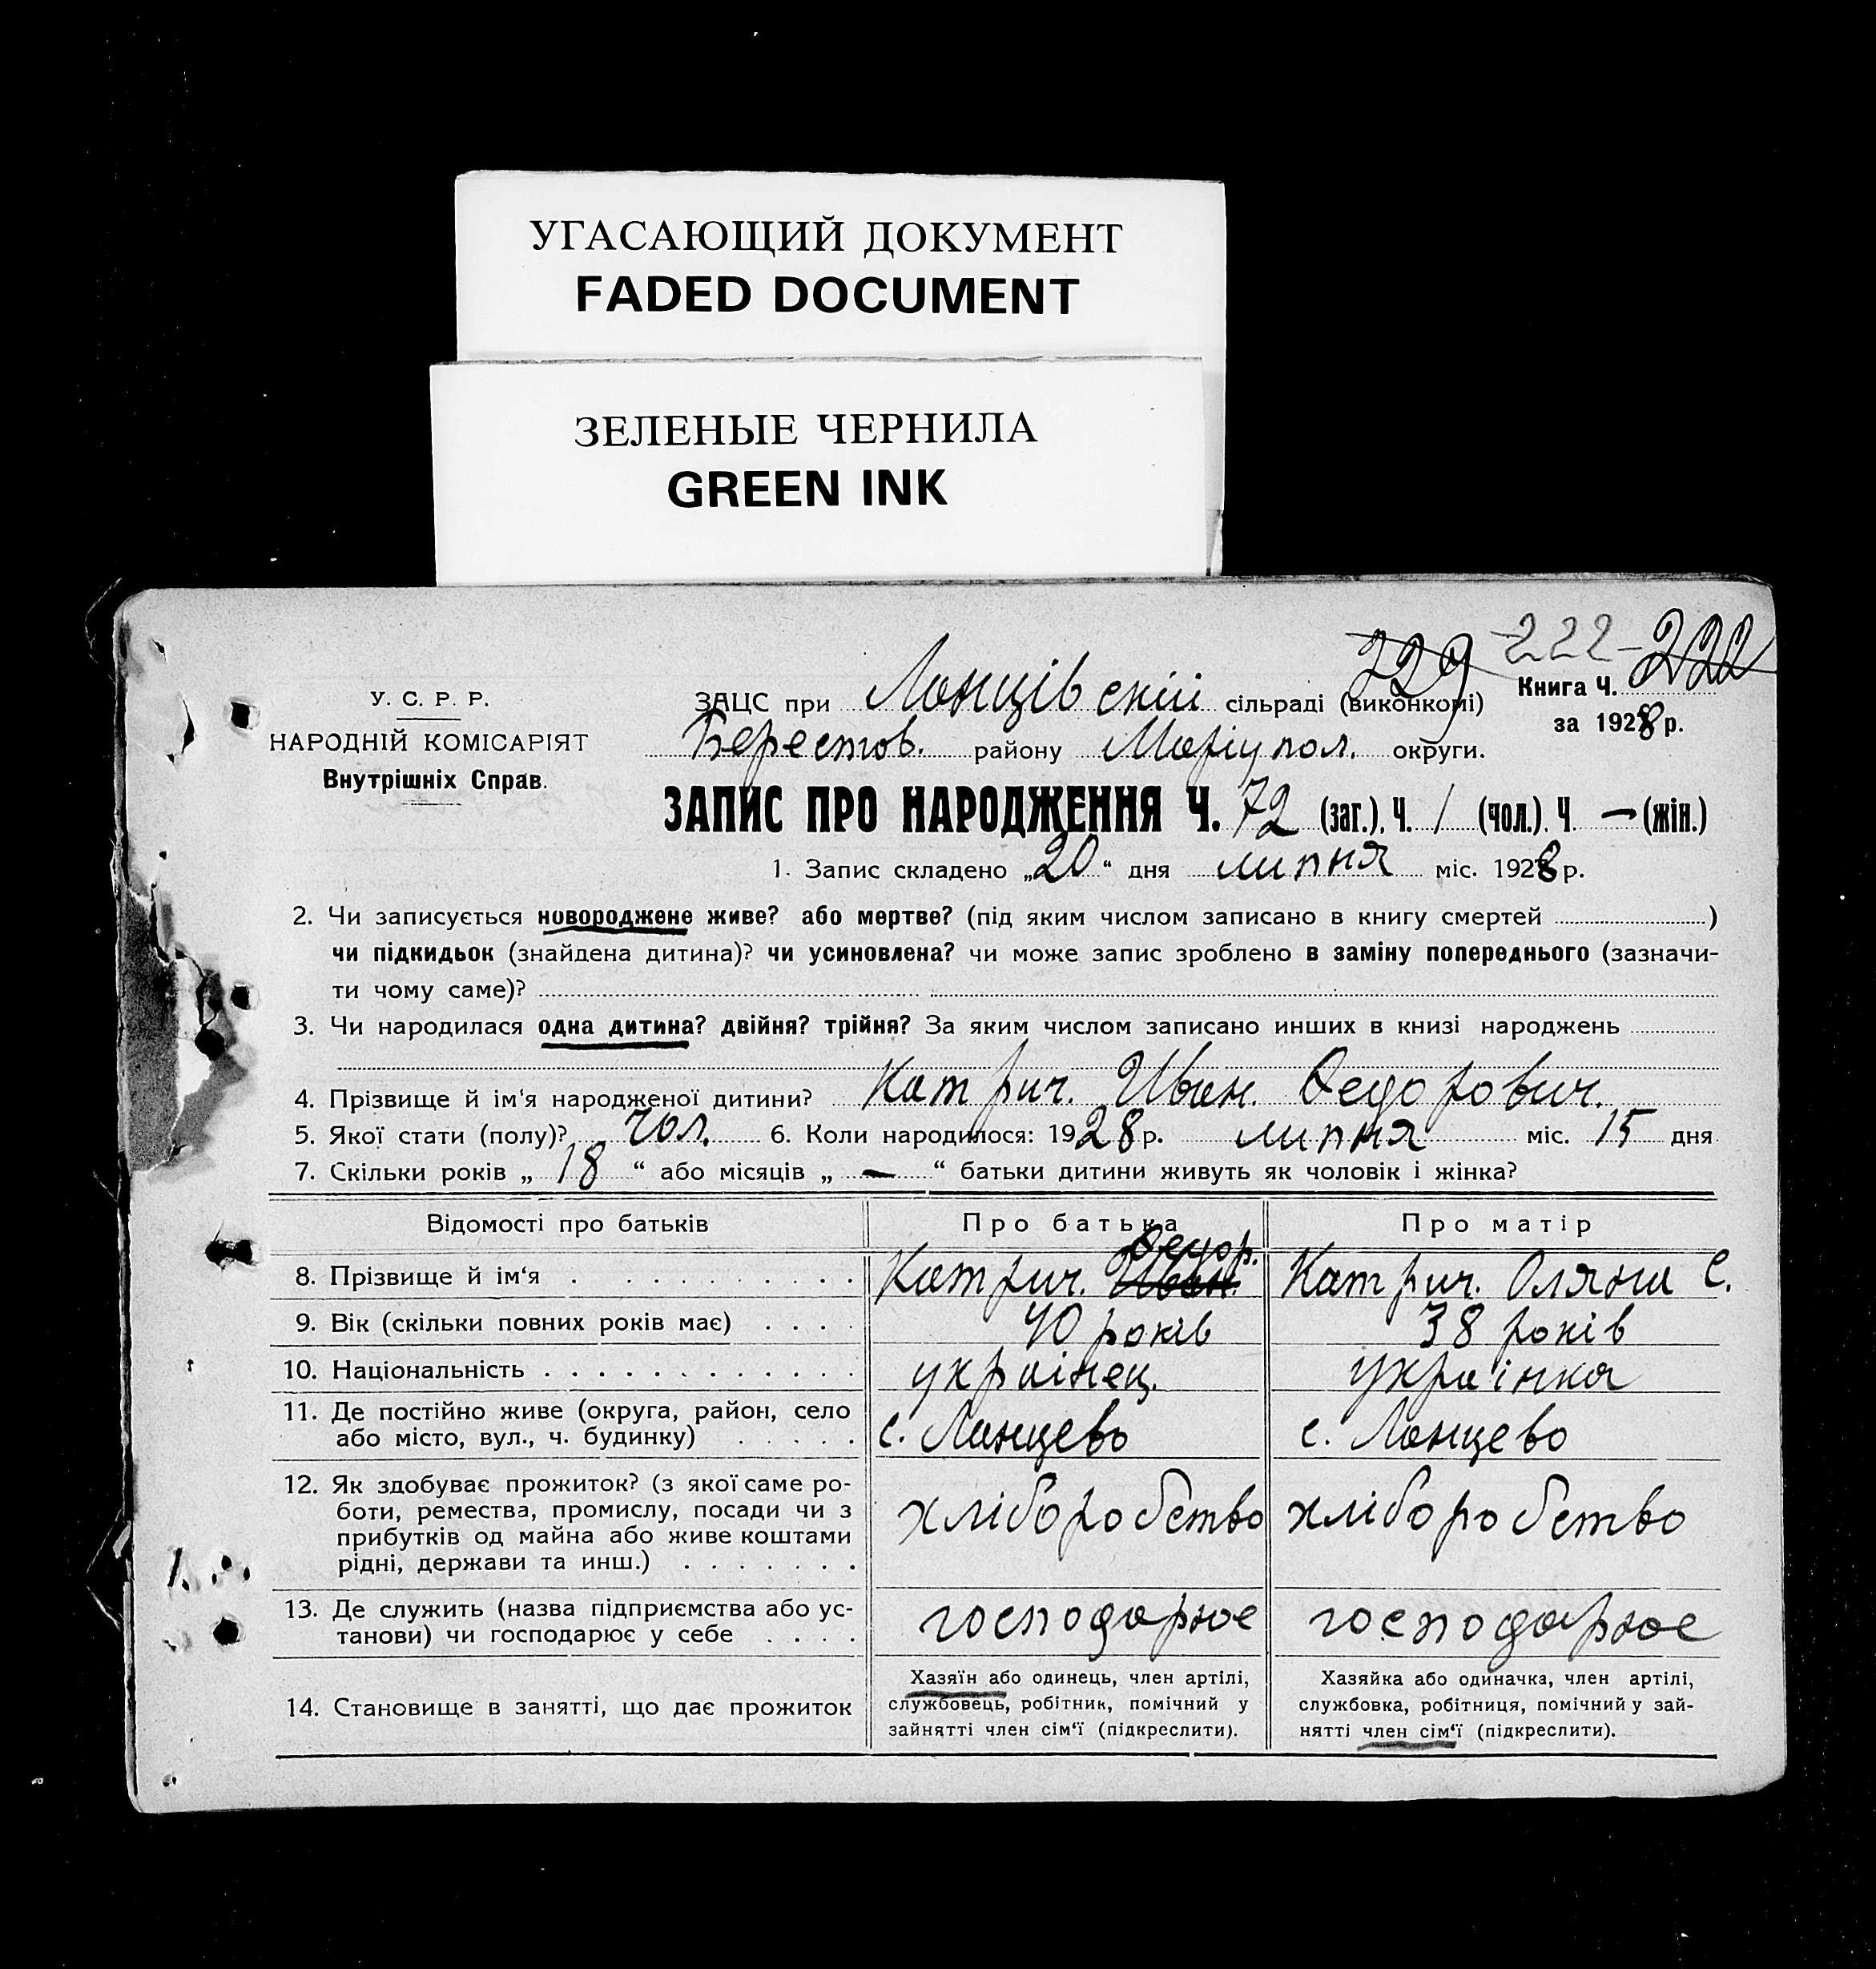 УГАСАЮЩИЙ ДОКУМЕНТ
FADED DOCUMENT
ЗЕЛЕНЫЕ ЧЕРНИЛА
GREEN INK
229 222 - 222
У. С. Р. Р.
НАРОДНІЙ КОМІСАРІЯТ
Внутрішніх Справ.
ЗАЦС при Ланцівскій сільраді (виконкомі)
Книга Ч.
за 1928 р.
Берестов. району Маріупол. округи.
ЗАПИС ПРО НАРОДЖЕННЯ Ч. 72 (заг.). Ч. 1 (чол.). Ч. — (жін.)
1. Запис складено „20“ дня липня міс. 1928 р.
2. Чи записується новороджене живе? або мертве? (під яким числом записано в книгу смертей )
чи підкидьок (знайдена дитина)? чи усиновлена? чи може запис зроблено в заміну попереднього (зазначи-
ти чому саме)?
3. Чи народилася одна дитина? двійня? трійня? За яким числом записано инших в книзі народжень
4. Прізвище й ім‘я народженої дитини? Катрич. Иван. Федорович.
5. Якої стати (полу)? чол. 6. Коли народилося: 1928 р. липня міс. 15 дня
7. Скільки років „ 18 “ або місяців „ — “ батьки дитини живуть як чоловік і жінка?
Відомості про батьків Про батька Про матір
8. Прізвище й ім‘я Катрич. Иван. Федор. Катрич. Оляна С.
9. Вік (скільки повних років має) 40 років 38 років
10. Національність украінец. украінка
11. Де постійно живе (округа, район, село
або місто, вул., ч. будинку) с. Ланцево с. Ланцево
12. Як здобуває прожиток? (з якої саме ро-
боти, ремества, промислу, посади чи з
прибутків од майна або живе коштами
рідні, держави та инш.) хліборобство хліборобство
13. Де служить (назва підприємства або ус-
танови) чи господарює у себе господарює господарює
14. Становище в занятті, що дає прожиток
Хазяїн або одинець, член артілі,
службовець, робітник, помічний у
зайнятті член сім‘ї (підкреслити).
Хазяйка або одиначка, член артілі,
службовка, робітниця, помічний у зай-
нятті член сім‘ї (підкреслити).